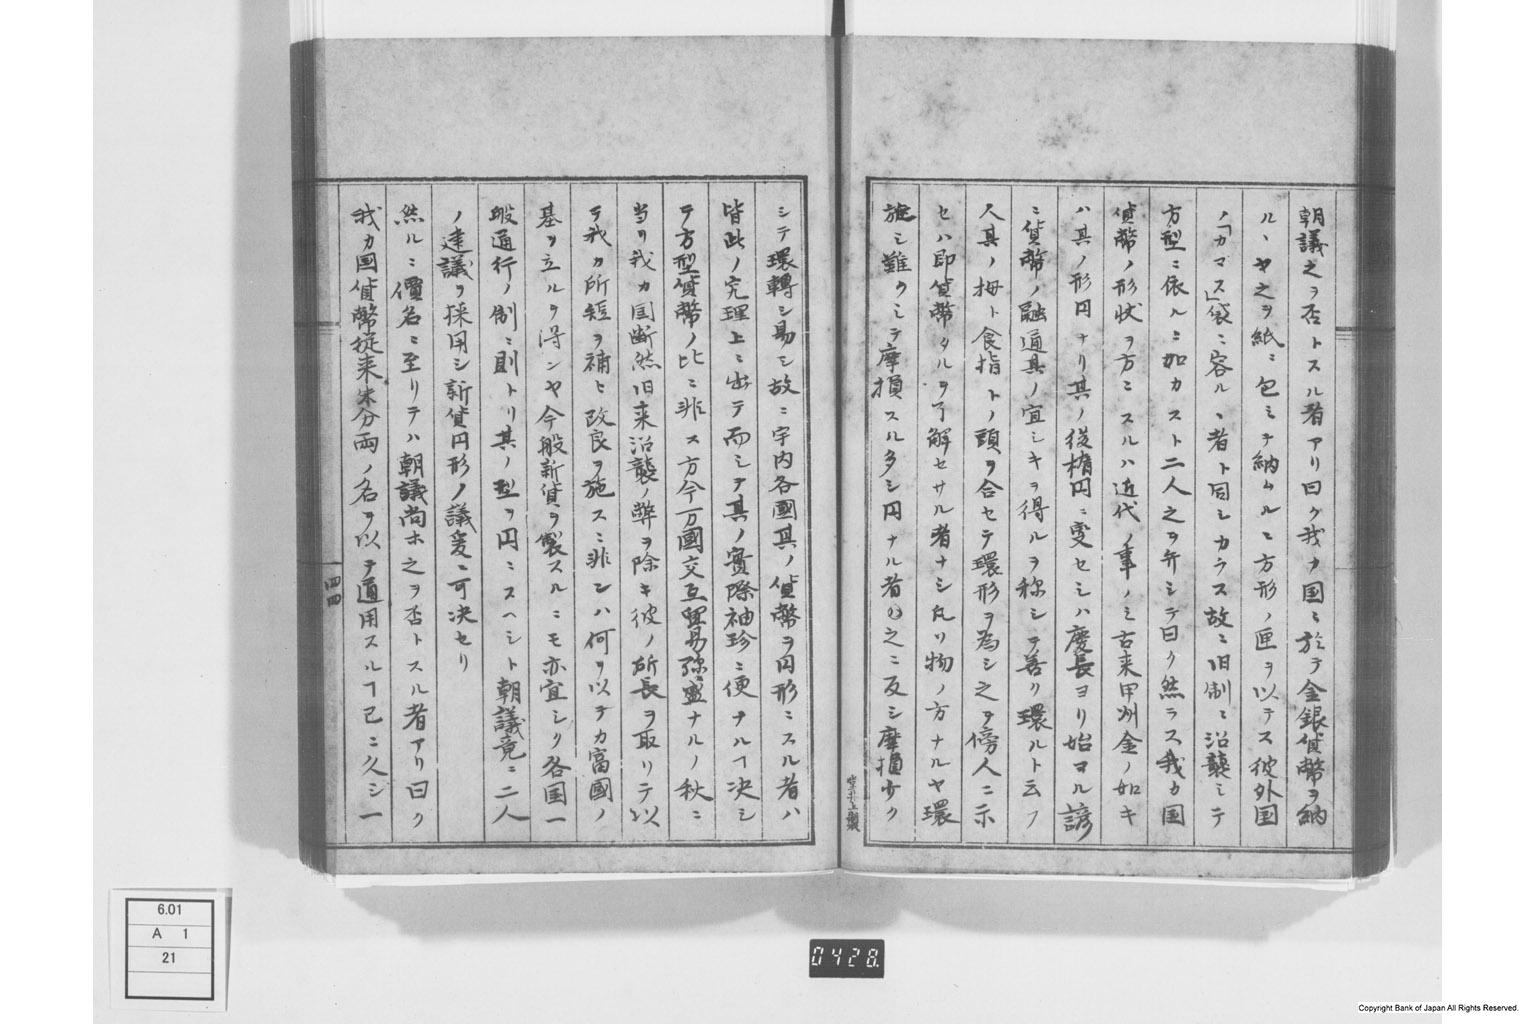 朝議之ヲ否トスル者アリ曰ク我カ国ニ於テ金銀貨幣ヲ納
ルヽヤ之ヲ紙ニ包ミテ納ムルニ方形ノ匣ヲ以テス彼外国
ノ「カマス」袋ニ容ルヽ者ト同シカラス故ニ旧制ニ沿襲シテ
方型ニ依ルニ如カスト二人之ヲ弁シテ曰ク然ラス我カ国
貨幣ノ形状ヲ方ニスルハ近代ノ事ノミ古来甲州金ノ如キ
ハ其ノ形円ナリ其ノ後楕円ニ変セシハ慶長ヨリ始ヨル諺
ニ貨幣ノ融通其ノ宜シキヲ得ルヲ称シテ善ク環ルト云フ
人其ノ拇ト食指トノ頭ヲ合セテ環形ヲ為シ之ヲ傍人ニ示
セハ即貨幣タルヲ了解セサル者ナシ凡ソ物ノ方ナルヤ環
旋シ難クシテ摩損スル多シ円ナル者ハ之ニ反シ摩損少ク
シテ環轉シ易シ故ニ宇内各國其ノ貨幣ヲ円形ニスル者ハ
皆此ノ究理上ニ出テ而シテ其ノ實際袖珍ニ便ナルヿ决シ
テ方型貨幣ノ比ニ非ス方今万國交互貿易弥盛ナルノ秋ニ
当リ我カ国断然旧来沿襲ノ弊ヲ除キ彼ノ所長ヲ取リテ以
テ我カ所短ヲ補ヒ改良ヲ施スニ非レハ何ヲ以テカ富國ノ
基ヲ立ルヲ得ンヤ今般新貨ヲ製スルニモ亦宜シク各国一
般通行ノ制ニ則トリ其ノ型ヲ円ニスヘシト朝議竟ニ二人
ノ建議ヲ採用シ新貨円形ノ議爰ニ可决セリ
然ルニ價名ニ至リテハ朝議尚ホ之ヲ否トスル者アリ曰ク
我カ国貨幣従来朱分両ノ名ヲ以テ通用スルヿ已ニ久シ一
四四
0428
6.01
A 1
21
Copyright Bank of Japan All Rights Reserved.